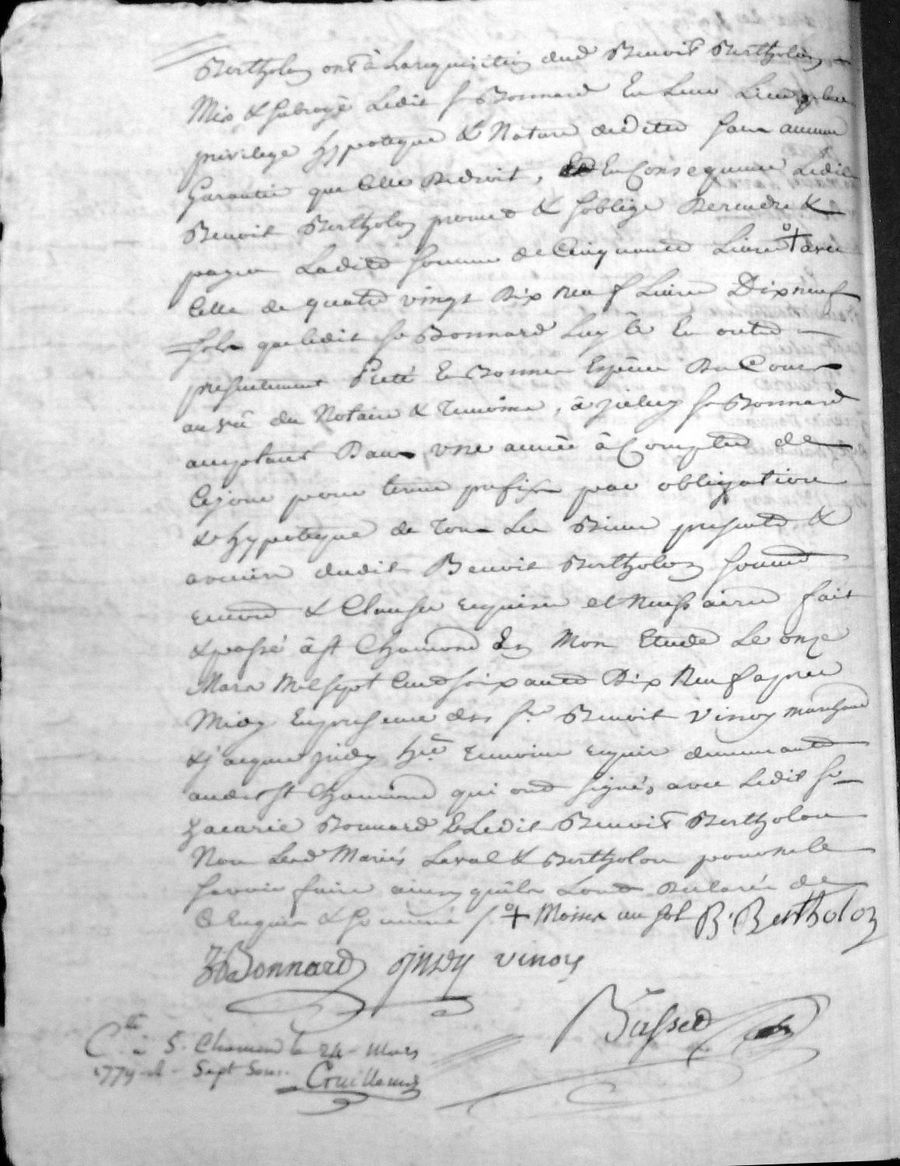 Bertholon ont à La requisition dud Benoit Bertholon
Mis & subrogé Ledit Sr Bonnard En Leur Lieu place
privilege hypoteque & Nature de dite sans aucune
Garantie que Celle de droit, En Consequence Ledit
Benoit Bertholon promet & soblige de rendre &
payer Ladite somme de Cinquante Livres + avec
Celle de quatre vingt Dix Neuf Livres Dix neuf
sols que ledit Sr Bonnard Luy a En outre
presentement Preté En Bonnes Espèces du Cours
au vû du Notaire & Temoins, à Iceluy Sr Bonnard
acceptant Dans une année à Compter de
Ce jour pour terme prefix par obligation
& hypoteque de Tous Les Biens presents &
avenir dudit Benoit Bertholon soumis
renon & Clauses requises et Necessaires fait
& passé à St Chamond En Mon Etude Le onze
Mars Mil sept Cent soixante Dix Neuf apres
Midy En presence des Sr Benoit Vinoy marchand
& jacques judy Temoins requis demeurants
audit St Chamond qui ont signé, avec Ledit Sr
Zacarie Bonnard & Ledit Benoit Bertholon
Non Lesd Mariés Laval & Bertholon pour ne le
savoir faire ainsy qu'ils L'ont Declaré de
Ce Enquis & sommés + Moins un sol B. Bertholon
Z Bonnard judy vinoy
Busset
Clle à S. Chamond le 24 Mars
1779 Sept sous Couillaud